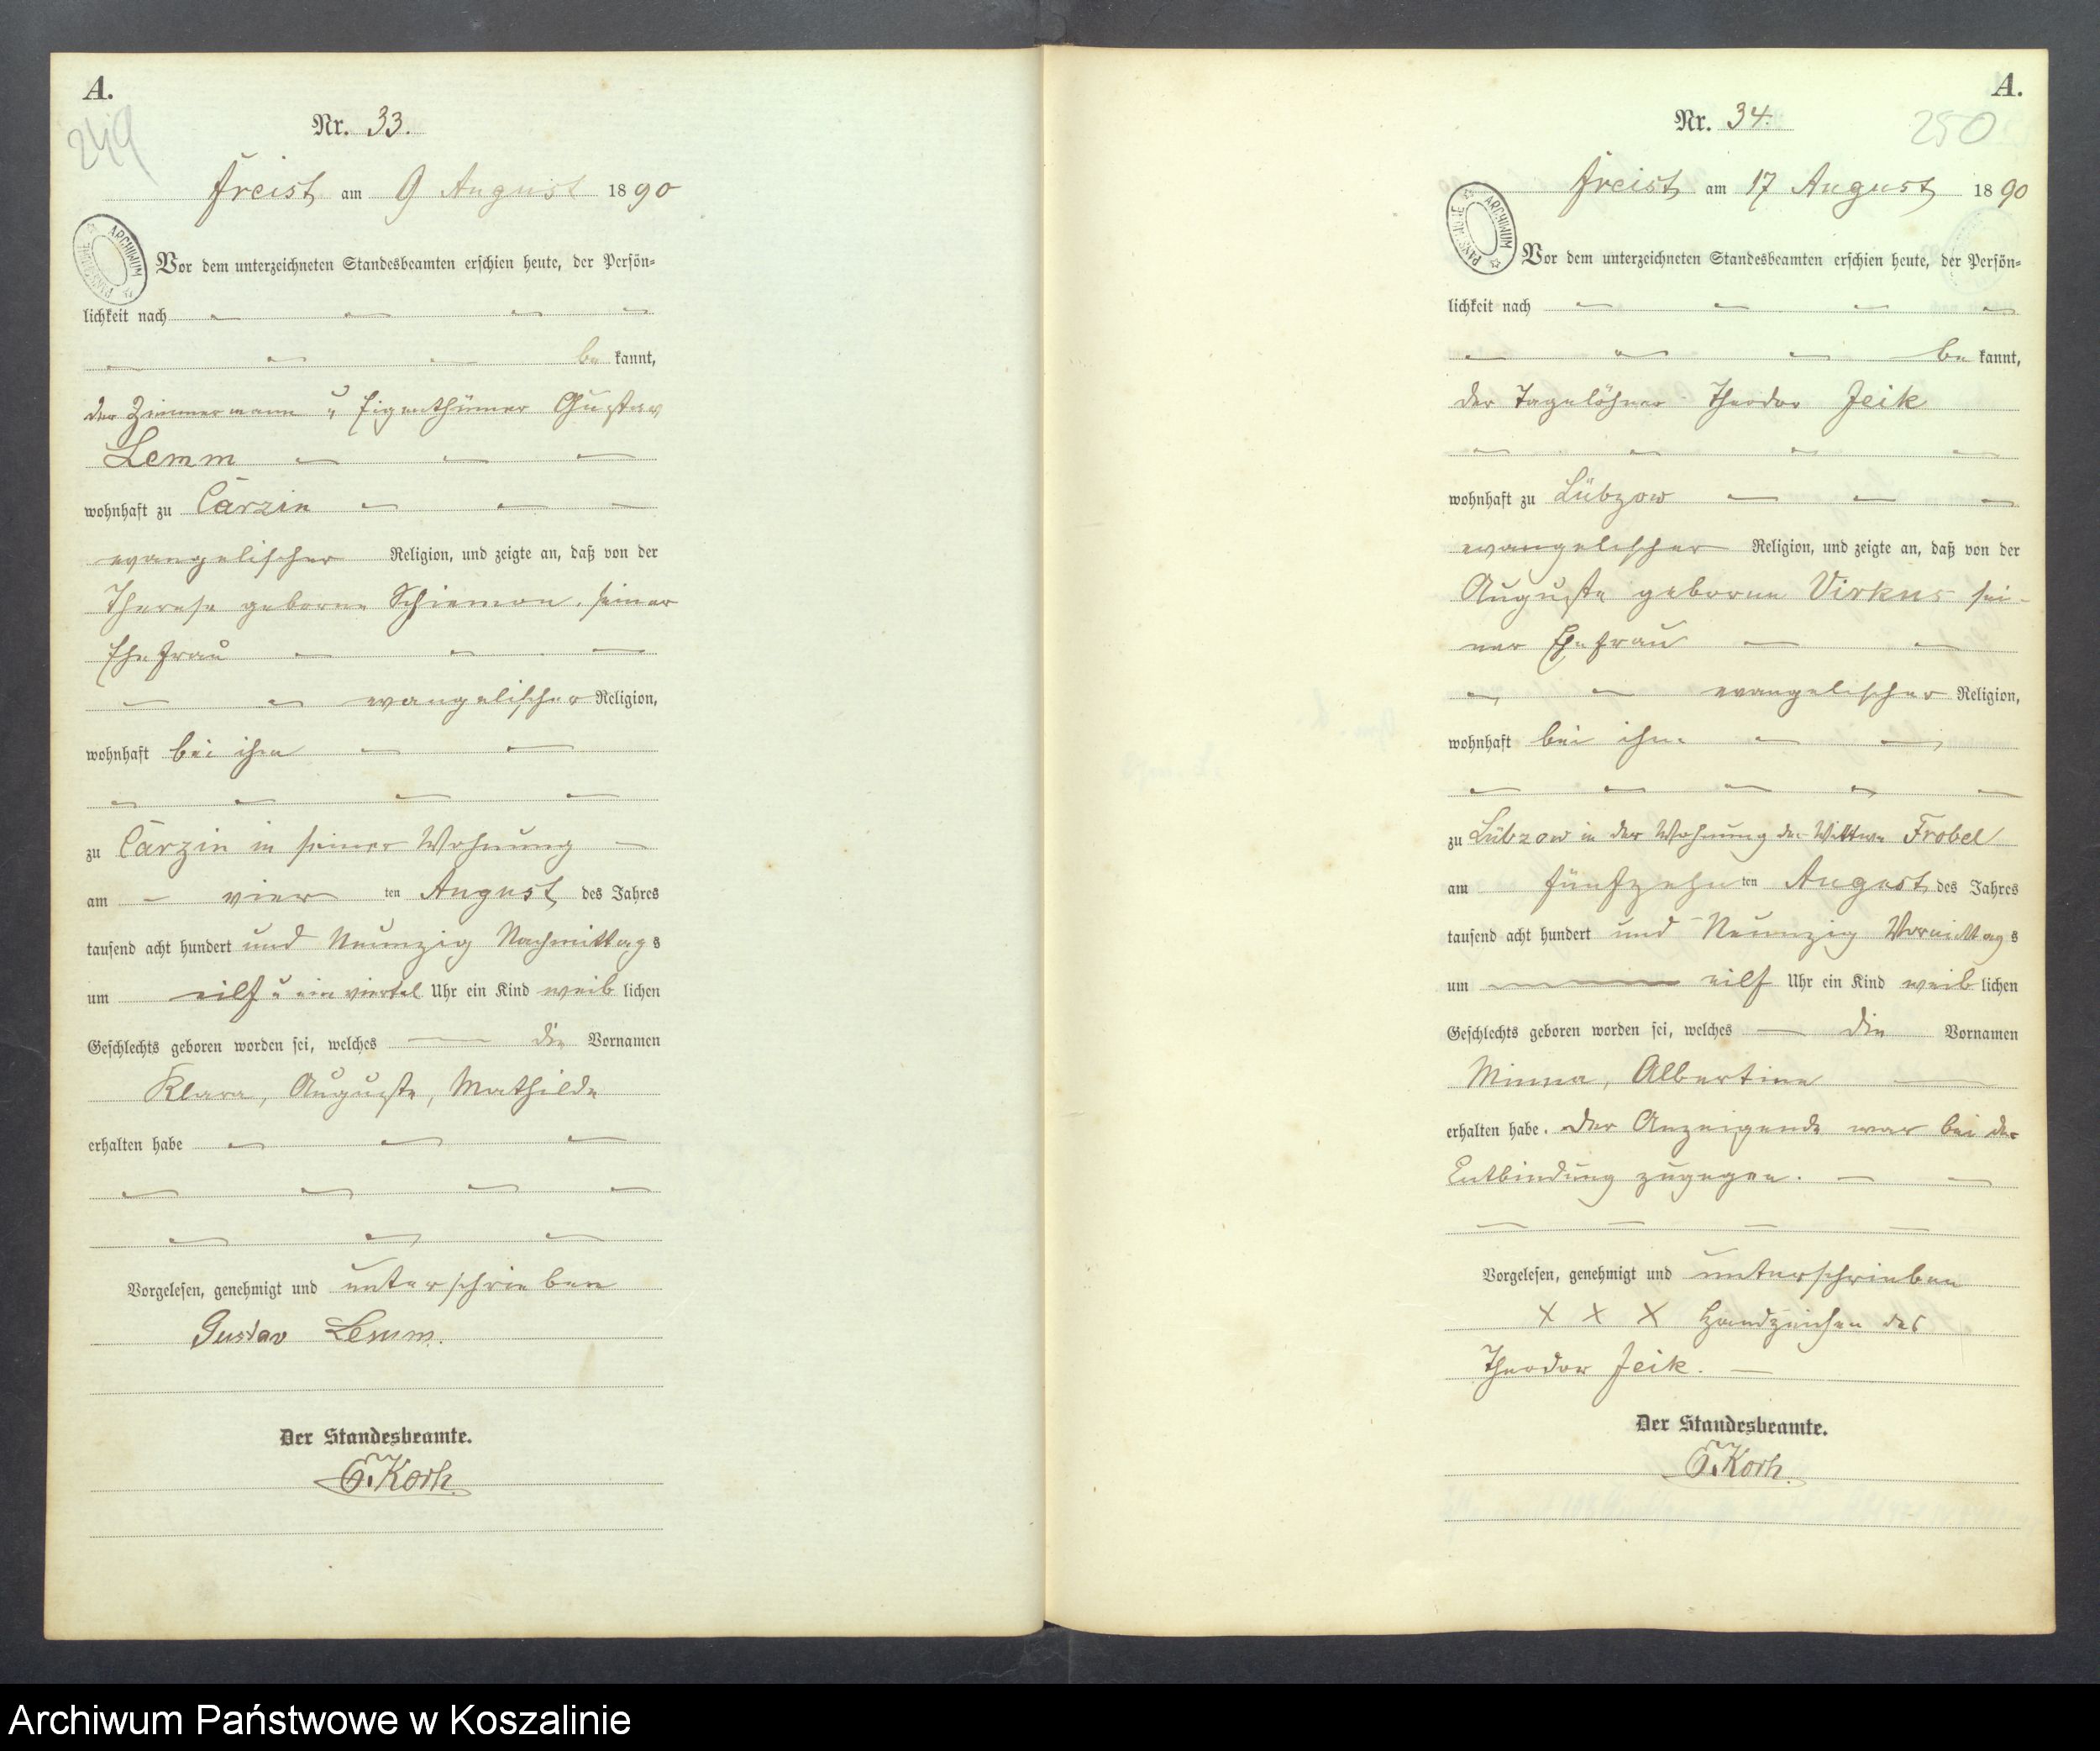 A.
249
Nr. 33.
Freist am 9 August 1890
ARCHIWUM PAŃSTWOWE
Vor dem unterzeichneten Standesbeamten erschien heute, der Persön=
lichkeit nach
be kannt,
der Zimmermann u Eigenthümer Gustav
Lemm
wohnhaft zu Carzin
evangelischer Religion, und zeigte an, daß von der
Therese geborne Schiemon, seiner
Ehefrau
evangelischer Religion,
wohnhaft bei ihm
zu Carzin in seiner Wohnung
am vier ten August des Jahres
tausend acht hundert und Neunzig Nachmittags
um eilf u ein viertel Uhr ein Kind weib lichen
Geschlechts geboren worden sei, welches die Vornamen
Klara, Auguste, Mathilde
erhalten habe
Vorgelesen, genehmigt und unterschrieben
Gustav Lemm.
Der Standesbeamte.
A.
Nr. 34.
250
Freist am 17 August 1890
ARCHIWUM PAŃSTWOWE
Vor dem unterzeichneten Standesbeamten erschien heute, der Persön=
lichkeit nach
be kannt,
der Tagelöhner Theodor Jeik
wohnhaft zu Lübzow
evangelischer Religion, und zeigte an, daß von der
Auguste geborne Virkus sei-
ner Ehefrau
evangelischer Religion,
wohnhaft bei ihm
zu Lübzow in der Wohnung der Wittwe Frobel
am fünfzehn ten August des Jahres
tausend acht hundert und Neunzig Vormittags
um eilf Uhr ein Kind weib lichen
Geschlechts geboren worden sei, welches die Vornamen
Minna, Albertine
erhalten habe. Der Anzeigende war bei der
Entbindung zugegen.
Vorgelesen, genehmigt und unterschrieben
X X X Handzeichen des
Theodor Jeik.
Der Standesbeamte.
Archiwum Państwowe w Koszalinie